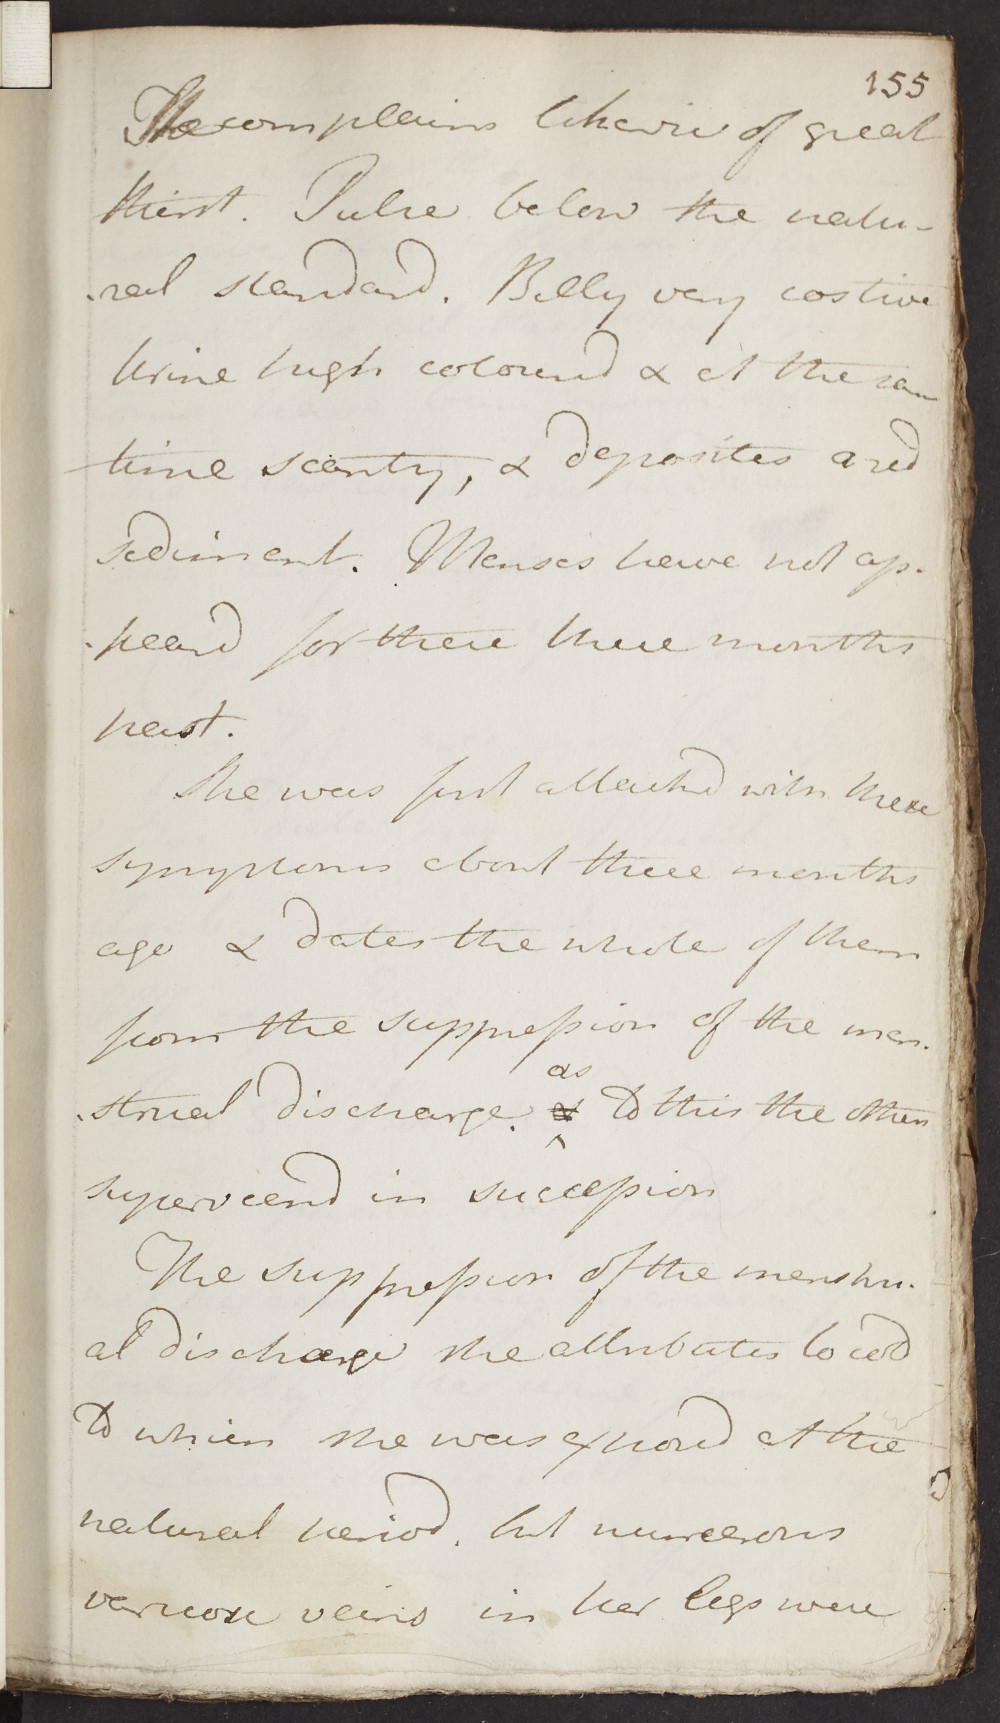 155
She complains likewise of great
thirst. Pulse below the natu-
-ral standard. Belly very costive
Urine high coloured & at the same
time scanty, & deposites a red
sediment. Menses have not ap-
-peard for these three months
past.
She was first attacked with these
symptoms about three months
ago & dates the whole of them
from the suppression of the men-
as
-strual discharge. & to this the others
superveend in succession
The suppression of the menstru-
al discharge she attributes to cold
to which she was exposed at the
natural period. but numerous
varicose veins in her legs were